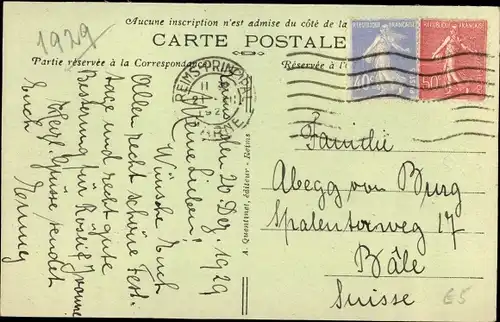 1929
Aucune inscription n'est admise du côté de la
CARTE POSTALE
Partie réservée à la Correspondance
Réservée à l'
REPUBLIQUE FRANÇAISE
40c
REPUBLIQUE FRANÇAISE
50c
REIMS-PRINCIPAL
MARNE
den 20 Dez. 1929
Meine Lieben!
Wünsche Euch
Allen recht schöne Fest-
tage und recht gute
Besserung für Rösli & Yvonne
Herzl. Grüsse sendet
Euch
V. Quentinet, éditeur - Reims
Familie
Abegg von Burg
Spalenterweg 17
Bâle
Suisse
E5